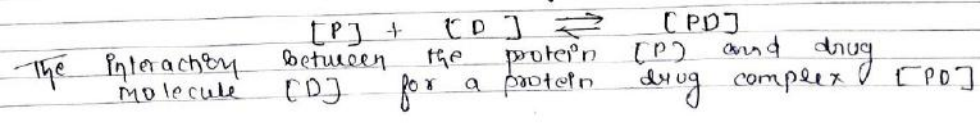 [P] + [D] ⇌ [PD]
The interaction between the protein [P] and drug
molecule [D] for a protein drug complex [PD]